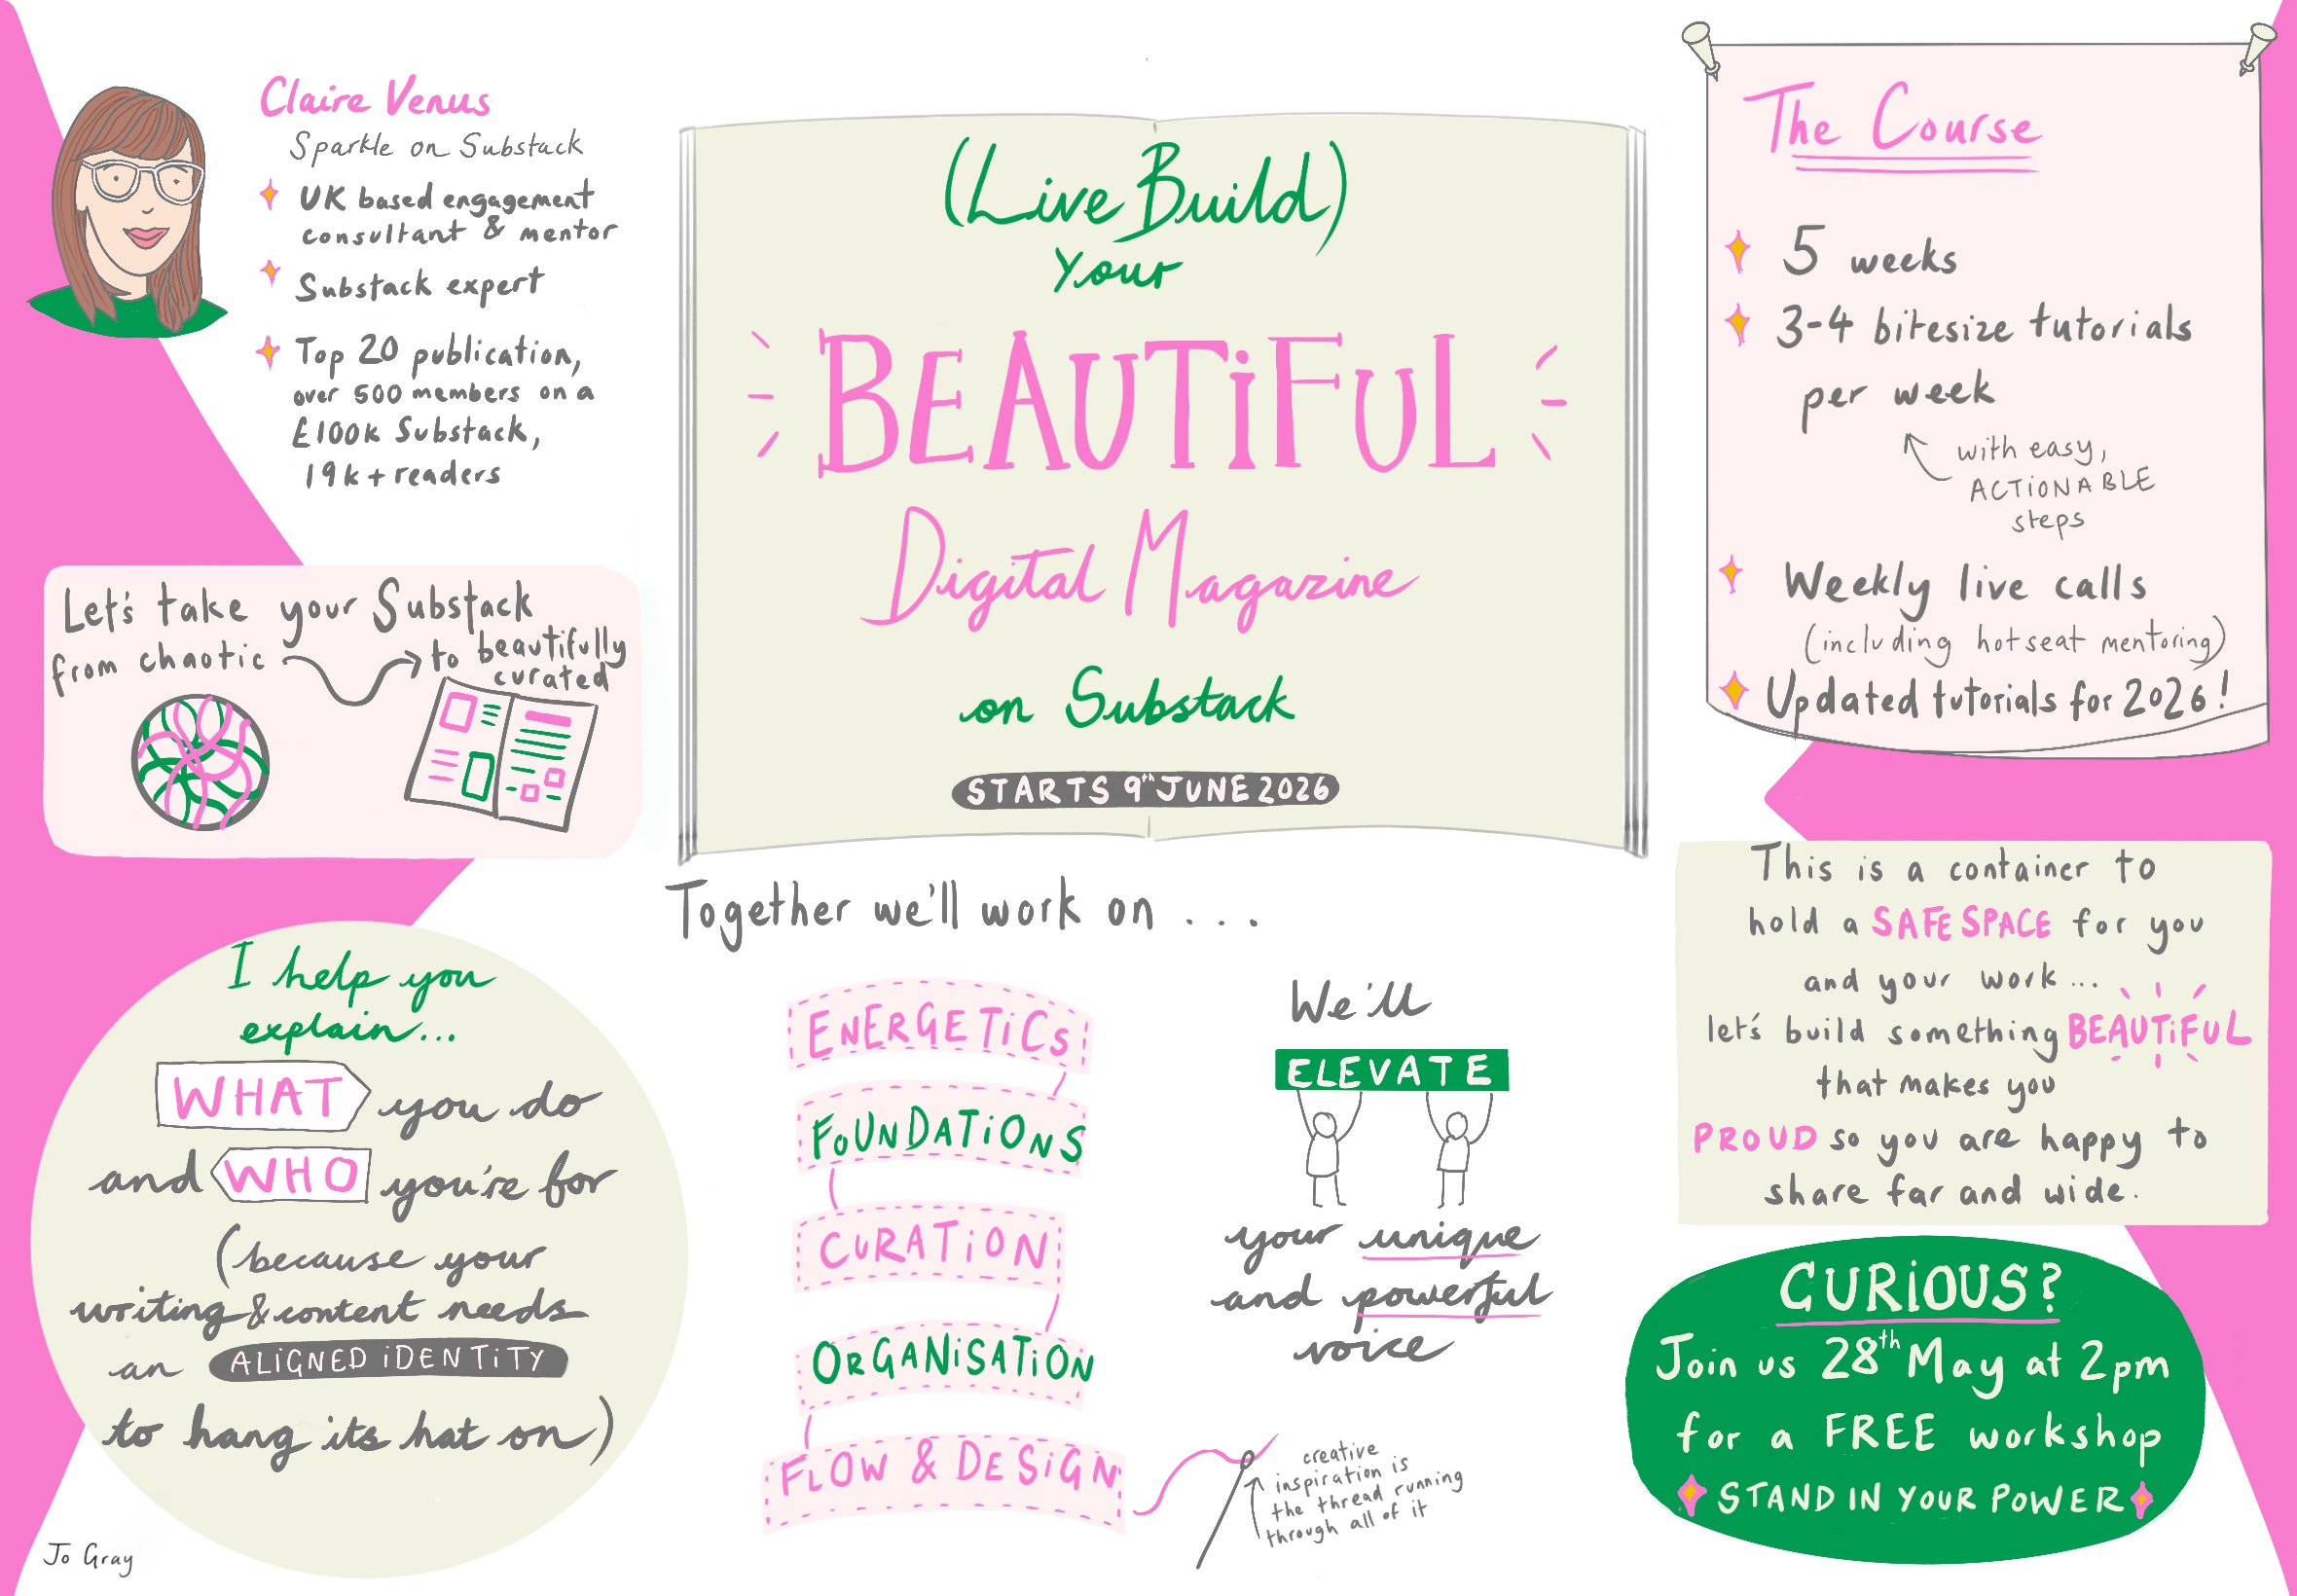 Claire Venus
Sparkle on Substack
UK based engagement
consultant & mentor
Substack expert
Top 20 publication,
over 500 members on a
£100k Substack,
19k+ readers
Let's take your Substack
from chaotic
to beautifully
curated
I help you
explain...
WHAT you do
and WHO you're for
(because your
writing & content needs
an ALIGNED IDENTITY
to hang its hat on)
Jo Gray
(Live Build)
Your
BEAUTIFUL
Digital Magazine
on Substack
STARTS 9th JUNE 2026
Together we'll work on ...
ENERGETICS
FOUNDATIONS
CURATION
ORGANISATION
FLOW & DESIGN
creative
inspiration is
the thread running
through all of it
We'll
ELEVATE
your unique
and powerful
voice
The Course
5 weeks
3-4 bitesize tutorials
per week
with easy,
ACTIONABLE
steps
Weekly live calls
(including hotseat mentoring)
Updated tutorials for 2026!
This is a container to
hold a SAFE SPACE for you
and your work...
let's build something BEAUTIFUL
that makes you
PROUD so you are happy to
share far and wide.
CURIOUS?
Join us 28th May at 2pm
for a FREE workshop
STAND IN YOUR POWER